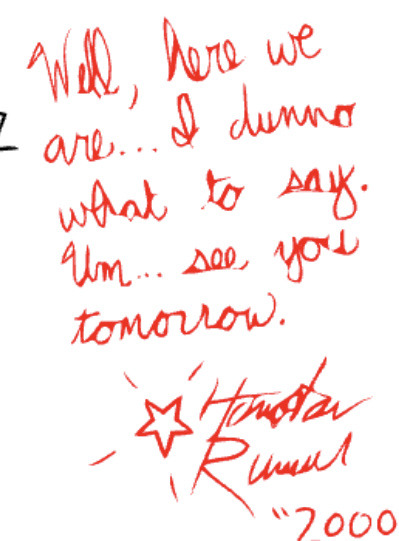 Well, here we
are... I dunno
what to say.
Um... see you
tomorrow.
"2000